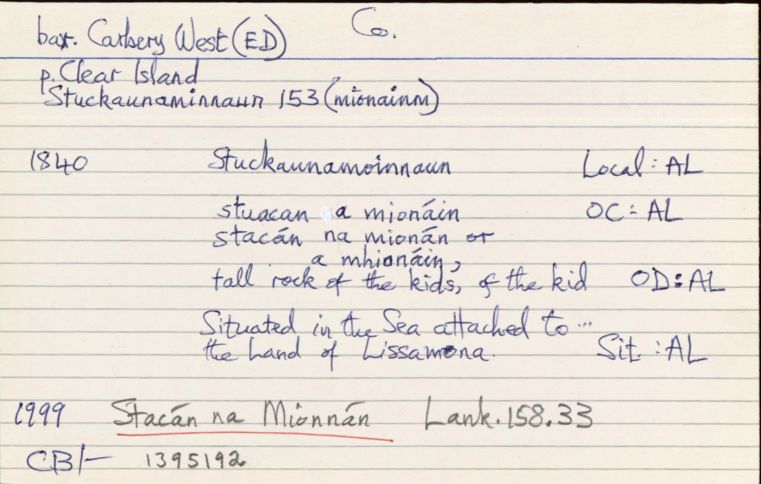 Co.
bar. Carbery West (ED)
p. Clear Island
Stuckaunaminnaun 153 (mionainm)
1840 Stuckaunamoinnaun Local : AL
stuacan a mionáin OC : AL
stacán na mionán or
a mhionáin,
tall rock of the kids, of the kid OD : AL
Situated in the Sea attached to ...
the Land of Lissamona. Sit. : AL
1999 Stacán na Mionnán Lank. 158.33
CB/- 1395192